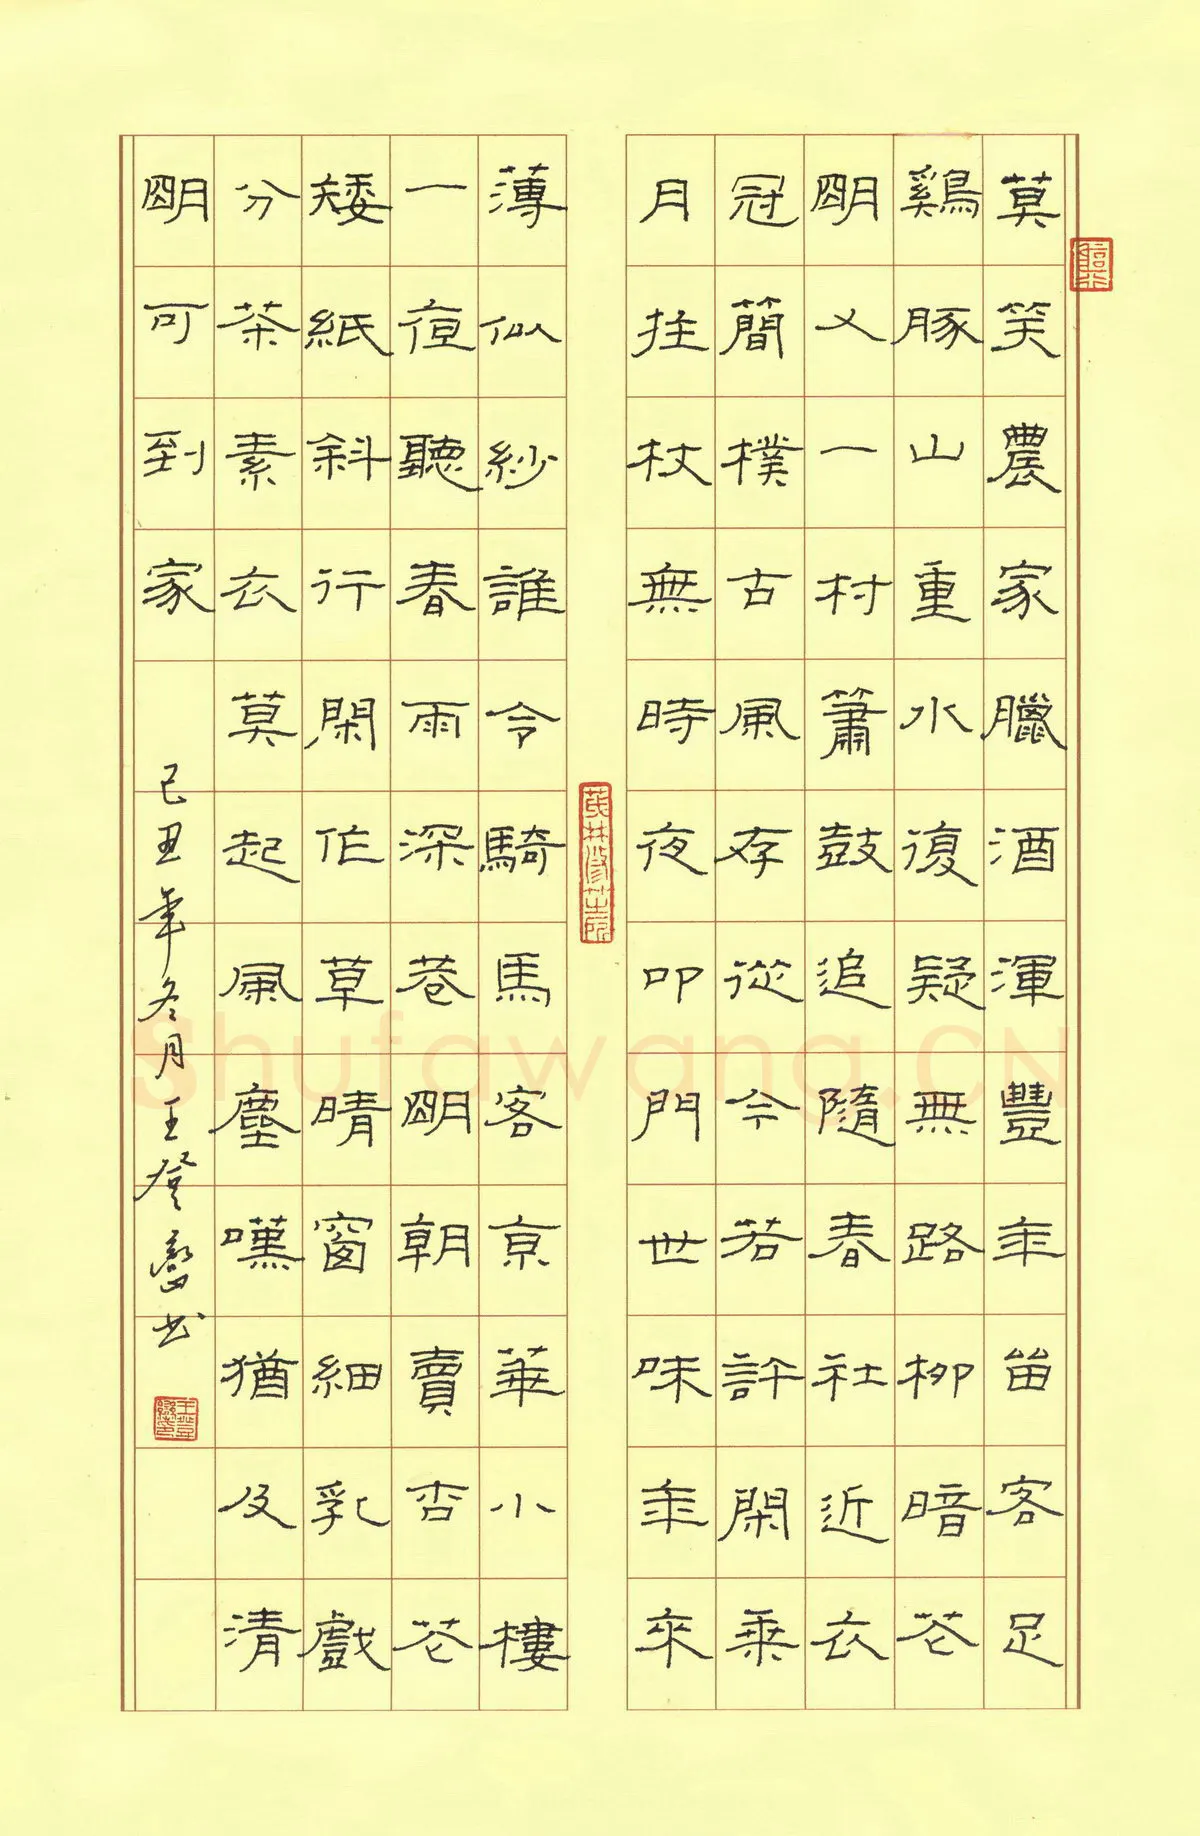 莫笑農家臘酒渾豐年留客足
鷄豚山重水復疑無路柳暗花
明又一村簫鼓追隨春社近衣
冠簡樸古風存從今若許閑乘
月拄杖無時夜叩門世味年來
薄似紗誰令騎馬客京華小樓
一夜聽春雨深巷明朝賣杏花
矮紙斜行閑作草晴窗細乳戲
分茶素衣莫起風塵嘆猶及清
明可到家
己丑年冬月王登巒书
Shufawang.CN